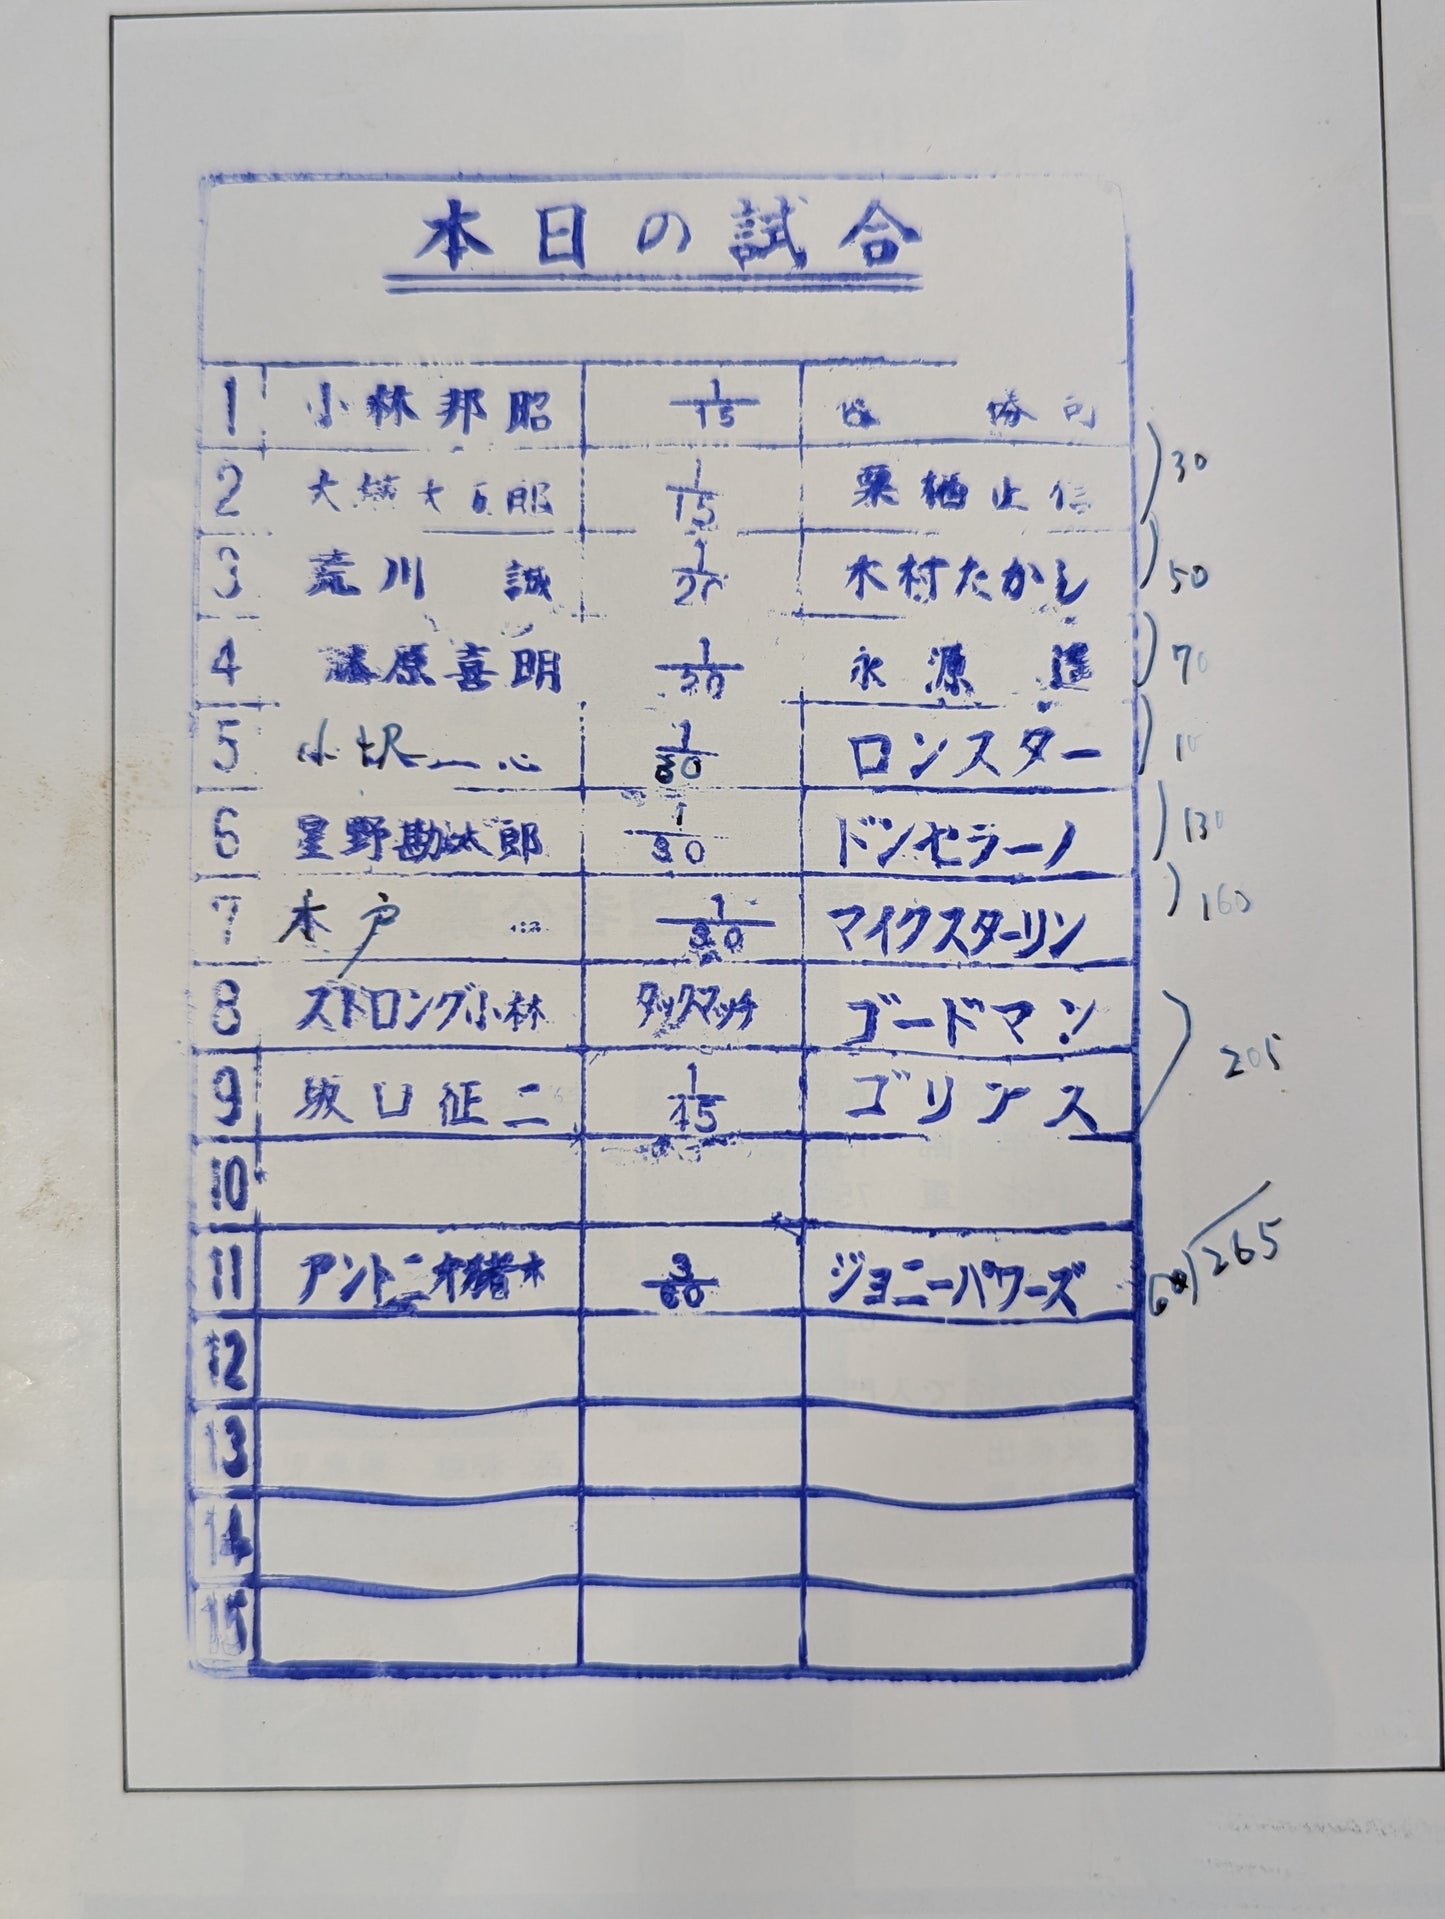 本日の試合
1 小林邦昭 1/15 勝司
2 大 郎 1/15 栗栖正信 30
3 荒川 誠 1/20 木村たかし 50
4 藤原喜明 1/20 永源 遥 70
5 小沢 1/30 ロンスター 10
6 星野勘太郎 1/30 ドンセラーノ 130
7 木戸 1/30 マイクスターリン 160
8 ストロング小林 タッグマッチ ゴードマン
9 坂口征二 1/45 ゴリアス 205
10
11 アントニオ猪木 3/60 ジョニーパワーズ 60)265
12
13
14
15